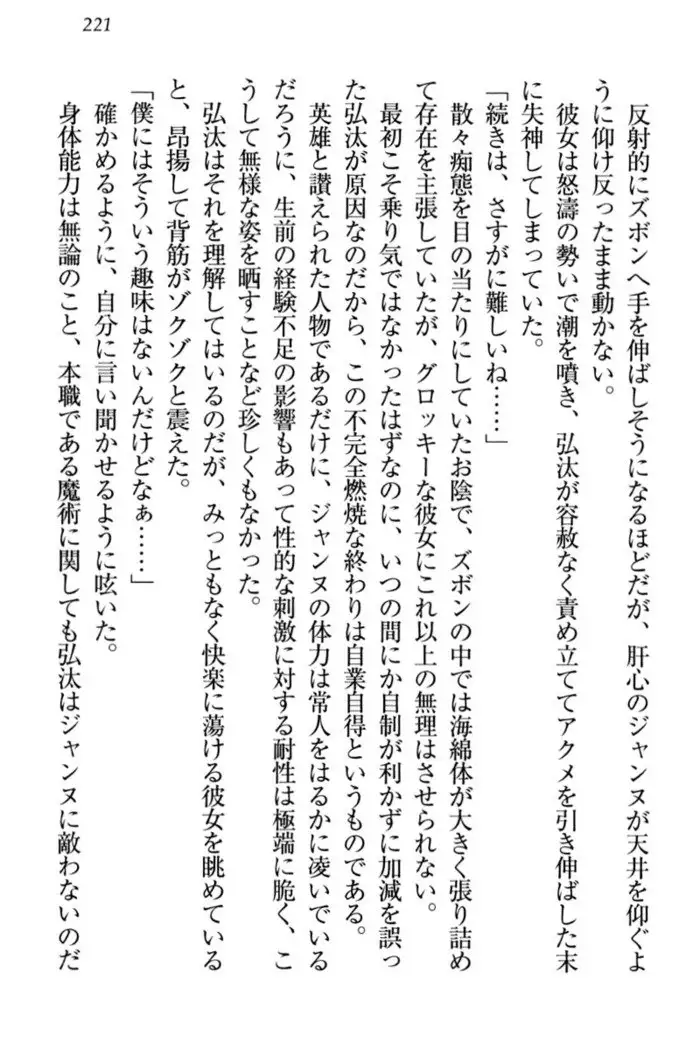 221
反射的にズボンへ手を伸ばしそうになるほどだが、肝心のジャンヌが天井を仰ぐよ
うに仰け反ったまま動かない。
彼女は怒濤の勢いで潮を噴き、弘汰が容赦なく責め立ててアクメを引き伸ばした末
に失神してしまっていた。
「続きは、さすがに難しいね……」
散々痴態を目の当たりにしていたお陰で、ズボンの中では海綿体が大きく張り詰め
て存在を主張していたが、グロッキーな彼女にこれ以上の無理はさせられない。
最初こそ乗り気ではなかったはずなのに、いつの間にか自制が利かずに加減を誤っ
た弘汰が原因なのだから、この不完全燃焼な終わりは自業自得というものである。
英雄と讃えられた人物であるだけに、ジャンヌの体力は常人をはるかに凌いでいる
だろうに、生前の経験不足の影響もあって性的な刺激に対する耐性は極端に脆く、こ
うして無様な姿を晒すことなど珍しくもなかった。
弘汰はそれを理解してはいるのだが、みっともなく快楽に蕩ける彼女を眺めている
と、昂揚して背筋がゾクゾクと震えた。
「僕にはそういう趣味はないんだけどなぁ……」
確かめるように、自分に言い聞かせるように呟いた。
身体能力は無論のこと、本職である魔術に関しても弘汰はジャンヌに敵わないのだ